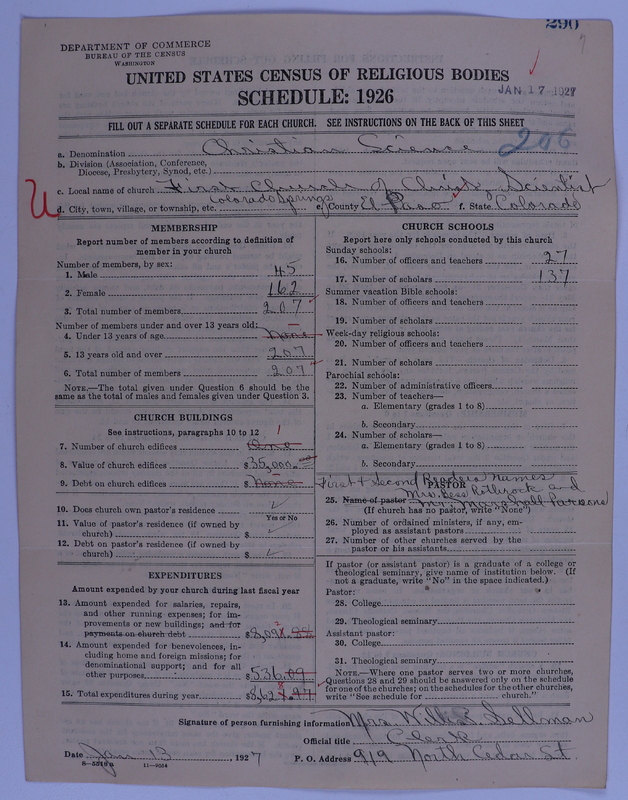 290
7
DEPARTMENT OF COMMERCE
BUREAU OF THE CENSUS
WASHINGTON
UNITED STATES CENSUS OF RELIGIOUS BODIES
SCHEDULE: 1926
JAN 17 1927
FILL OUT A SEPARATE SCHEDULE FOR EACH CHURCH. SEE INSTRUCTIONS ON THE BACK OF THIS SHEET
206
a. Denomination Christian Science
b. Division (Association, Conference, Diocese, Presbytery, Synod, etc.)
c. Local name of church First Church of Christ, Scientist
d. City, town, village, or township, etc. Colorado Springs e. County El Paso f. State Colorado
MEMBERSHIP
Report number of members according to definition of
member in your church
Number of members, by sex:
1. Male 45
2. Female 162
3. Total number of members 207
Number of members under and over 13 years old:
4. Under 13 years of age None
5. 13 years old and over 207
6. Total number of members 207
NOTE.—The total given under Question 6 should be the
same as the total of males and females given under Question 3.
CHURCH BUILDINGS
See instructions, paragraphs 10 to 12
1
7. Number of church edifices One
8. Value of church edifices $35,000.
9. Debt on church edifices $None
10. Does church own pastor's residence
Yes or No
11. Value of pastor's residence (if owned by
church) $
12. Debt on pastor's residence (if owned by
church) $
EXPENDITURES
Amount expended by your church during last fiscal year
13. Amount expended for salaries, repairs,
and other running expenses; for im-
provements or new buildings; and for
payments on church debt $8,091.88
14. Amount expended for benevolences, in-
cluding home and foreign missions; for
denominational support; and for all
other purposes $536.09
15. Total expenditures during year $8,627.97
CHURCH SCHOOLS
Report here only schools conducted by this church
Sunday schools:
16. Number of officers and teachers 27
17. Number of scholars 137
Summer vacation Bible schools:
18. Number of officers and teachers
19. Number of scholars
Week-day religious schools:
20. Number of officers and teachers
21. Number of scholars
Parochial schools:
22. Number of administrative officers
23. Number of teachers—
a. Elementary (grades 1 to 8)
b. Secondary
24. Number of scholars—
a. Elementary (grades 1 to 8)
b. Secondary
First & Second Readers Names
PASTOR
Mrs. Bess Rothrock and
25. Name of pastor Mr. Marshall Parsons
(If church has no pastor, write "None")
26. Number of ordained ministers, if any, em-
ployed as assistant pastors
27. Number of other churches served by the
pastor or his assistants
If pastor (or assistant pastor) is a graduate of a college or
theological seminary, give name of institution below. (If
not a graduate, write "No" in the space indicated.)
Pastor:
28. College
29. Theological seminary
Assistant pastor:
30. College
31. Theological seminary
NOTE.—Where one pastor serves two or more churches,
Questions 28 and 29 should be answered only on the schedule
for one of the churches; on the schedules for the other churches,
write "See schedule for church."
Signature of person furnishing information Mrs. Willis Sellman
Official title Clerk
Date Jan 13 1927 P. O. Address 919 North Cedar St.
8-5516a 11-9034